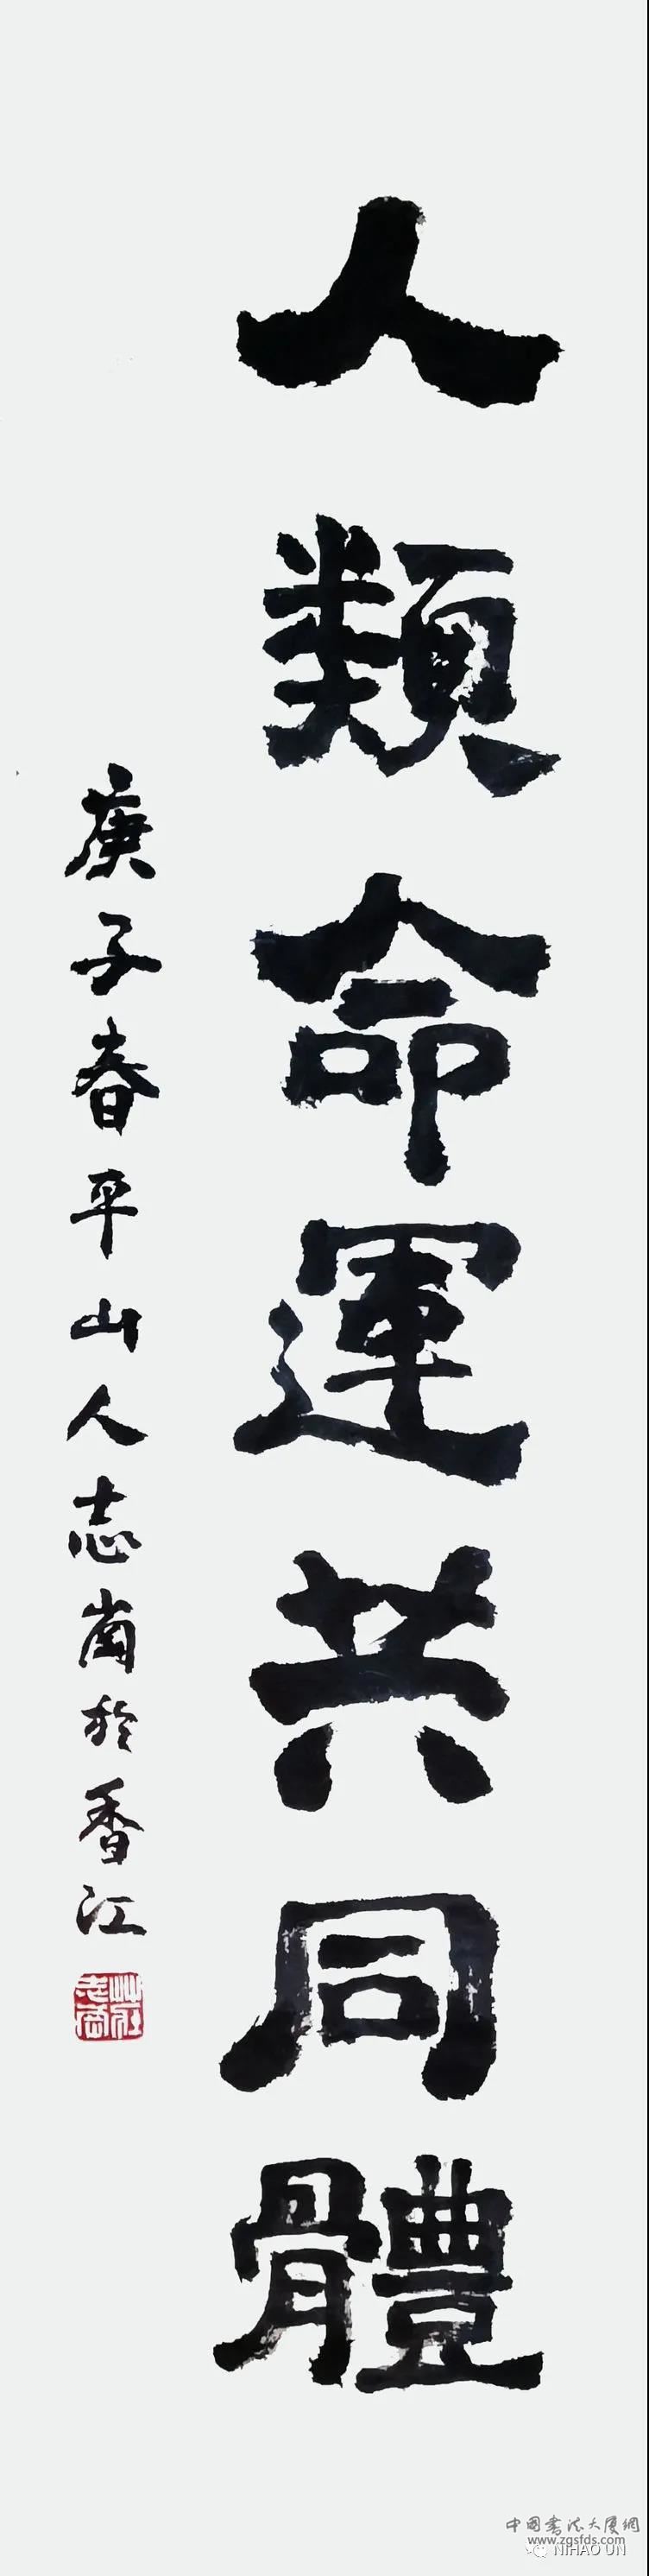 人類命運共同體
庚子春平山人志崗於香江
莊志崗
中國書法大廈網
www.zgsfds.com
NIHAO UN